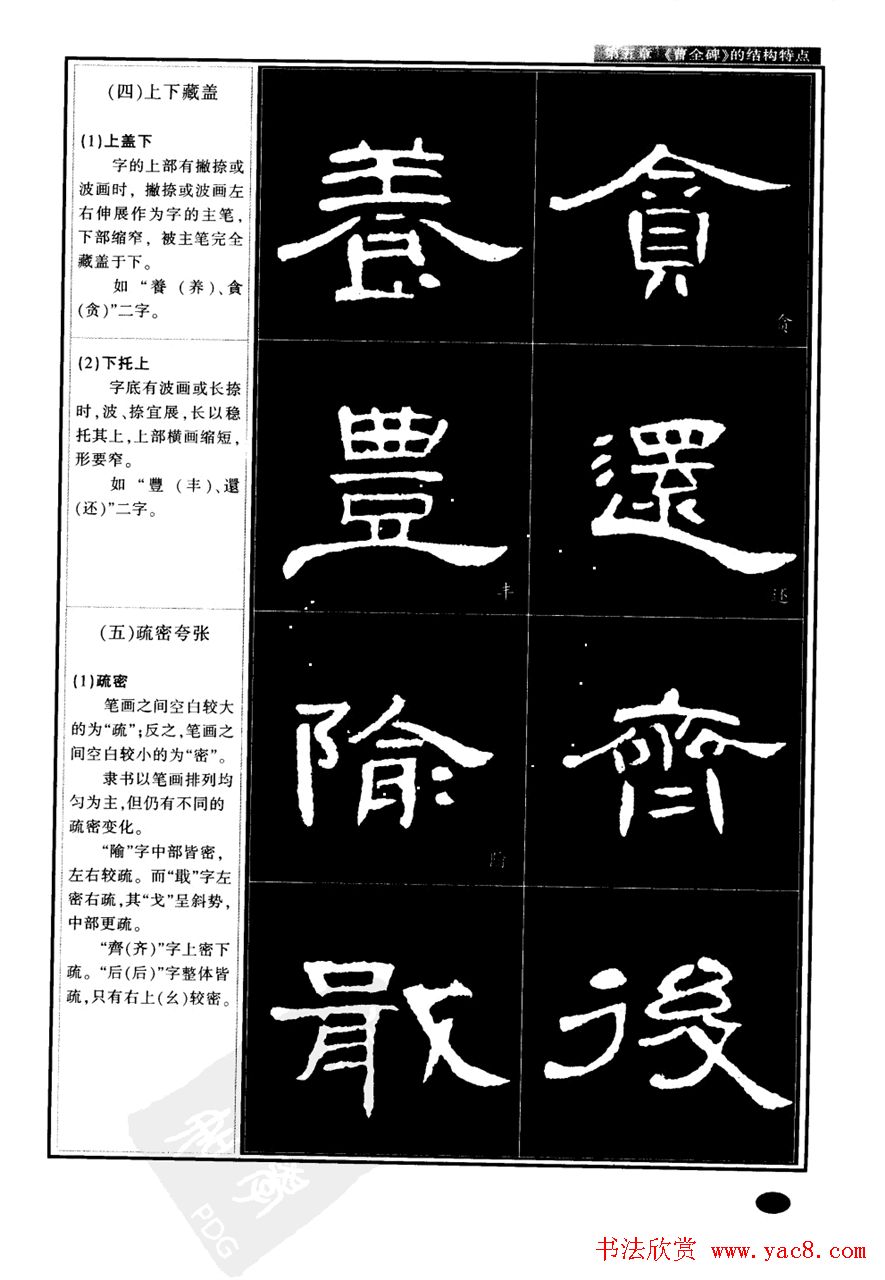 第五章 《曹全碑》的结构特点
(四)上下藏盖
(1)上盖下
字的上部有撇捺或
波画时，撇捺或波画左
右伸展作为字的主笔，
下部缩窄，被主笔完全
藏盖于下。
如“養(养)、貪
(贪)”二字。
(2)下托上
字底有波画或长捺
时，波、捺宜展，长以稳
托其上，上部横画缩短，
形要窄。
如“豐(丰)、還
(还)”二字。
(五)疏密夸张
(1)疏密
笔画之间空白较大
的为“疏”；反之，笔画之
间空白较小的为“密”。
隶书以笔画排列均
匀为主，但仍有不同的
疏密变化。
“隃”字中部皆密，
左右较疏。而“戢”字左
密右疏，其“戈”呈斜势，
中部更疏。
“齊(齐)”字上密下
疏。“后(后)”字整体皆
疏，只有右上(幺)较密。
養 貪
贪
豐 還
丰 还
隃 齊
隃
後
PDG
书法欣赏 www.yac8.com